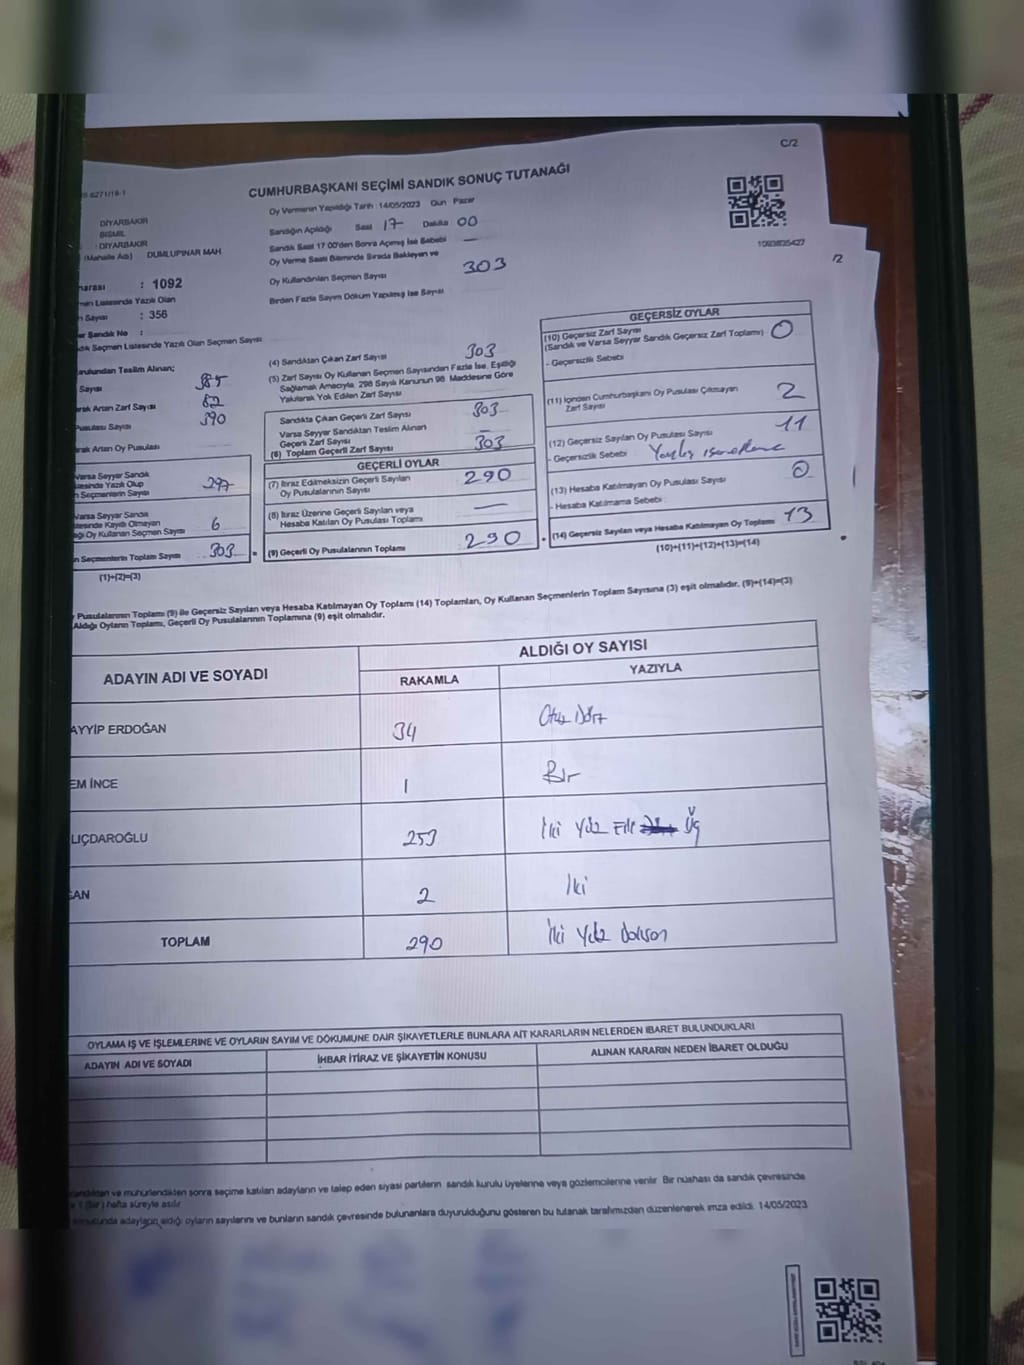 C/2
CUMHURBAŞKANI SEÇİMİ SANDIK SONUÇ TUTANAĞI
Oy Vermenin Yapıldığı Tarih : 14/05/2023 Gün Pazar
DİYARBAKIR
BİSMİL
: DİYARBAKIR
(Mahalle Adı) DUMLUPINAR MAH
Sandığın Açıldığı Saat 17 Dakika 00
Sandık Saat 17.00'den Sonra Açılmış İse Sebebi —
Oy Verme Saati Bitiminde Sırada Bekleyen ve
Oy Kullandırılan Seçmen Sayısı 303
Birden Fazla Sayım Döküm Yapılmış İse Sayısı
1093835427
/2
: 1092
men Listesinde Yazılı Olan
n Sayısı : 356
er Sandık No :
dık Seçmen Listesinde Yazılı Olan Seçmen Sayısı
Teslim Alınan;
Sayısı 385
rak Artan Zarf Sayısı 82
Pusulası Sayısı 390
rak Artan Oy Pusulası
Varsa Seyyar Sandık
tesinde Yazılı Olup
n Seçmenlerin Sayısı 297
Varsa Seyyar Sandık
tesinde Kayıtlı Olmayan
ğı Oy Kullanan Seçmen Sayısı 6
n Seçmenlerin Toplam Sayısı 303
(1)+(2)=(3)
(4) Sandıktan Çıkan Zarf Sayısı 303
(5) Zarf Sayısı Oy Kullanan Seçmen Sayısından Fazla İse, Eşitliği
Sağlamak Amacıyla, 298 Sayılı Kanunun 98. Maddesine Göre
Yakılarak Yok Edilen Zarf Sayısı
Sandıkta Çıkan Geçerli Zarf Sayısı 303
Varsa Seyyar Sandıktan Teslim Alınan
Geçerli Zarf Sayısı —
(6) Toplam Geçerli Zarf Sayısı 303
GEÇERLİ OYLAR
(7) İtiraz Edilmeksizin Geçerli Sayılan
Oy Pusulalarının Sayısı 290
(8) İtiraz Üzerine Geçerli Sayılan veya
Hesaba Katılan Oy Pusulası Toplamı —
(9) Geçerli Oy Pusulalarının Toplamı 290
GEÇERSİZ OYLAR
(10) Geçersiz Zarf Sayısı
(Sandık ve Varsa Seyyar Sandık Geçersiz Zarf Toplamı) 0
- Geçersizlik Sebebi
(11) İçinden Cumhurbaşkanı Oy Pusulası Çıkmayan
Zarf Sayısı 2
(12) Geçersiz Sayılan Oy Pusulası Sayısı 11
- Geçersizlik Sebebi Yanlış
(13) Hesaba Katılmayan Oy Pusulası Sayısı 0
- Hesaba Katılmama Sebebi
(14) Geçersiz Sayılan veya Hesaba Katılmayan Oy Toplamı 13
(10)+(11)+(12)+(13)=(14)
Pusulalarının Toplamı (9) ile Geçersiz Sayılan veya Hesaba Katılmayan Oy Toplamı (14) Toplamları, Oy Kullanan Seçmenlerin Toplam Sayısına (3) eşit olmalıdır. (9)+(14)=(3)
Aldığı Oyların Toplamı, Geçerli Oy Pusulalarının Toplamına (9) eşit olmalıdır.
ADAYIN ADI VE SOYADI ALDIĞI OY SAYISI
RAKAMLA YAZIYLA
AYYİP ERDOĞAN 34 Otuz Dört
EM İNCE 1 Bir
LIÇDAROĞLU 253 İki Yüz Elli Üç
ĞAN 2 İki
TOPLAM 290 İki Yüz Doksan
OYLAMA İŞ VE İŞLEMLERİNE VE OYLARIN SAYIM VE DÖKÜMÜNE DAİR ŞİKAYETLERLE BUNLARA AİT KARARLARIN NELERDEN İBARET BULUNDUKLARI
ADAYIN ADI VE SOYADI İHBAR İTİRAZ VE ŞİKAYETİN KONUSU ALINAN KARARIN NEDEN İBARET OLDUĞU
ve mühürlendikten sonra seçime katılan adayların ve talep eden siyasi partilerin sandık kurulu üyelerine veya gözlemcilerine verilir. Bir nüshası da sandık çevresinde
1 (Bir) hafta süreyle asılır.
adayların aldığı oyların sayılarını ve bunların sandık çevresinde bulunanlara duyurulduğunu gösteren bu tutanak tarafımızdan düzenlenerek imza edildi. 14/05/2023